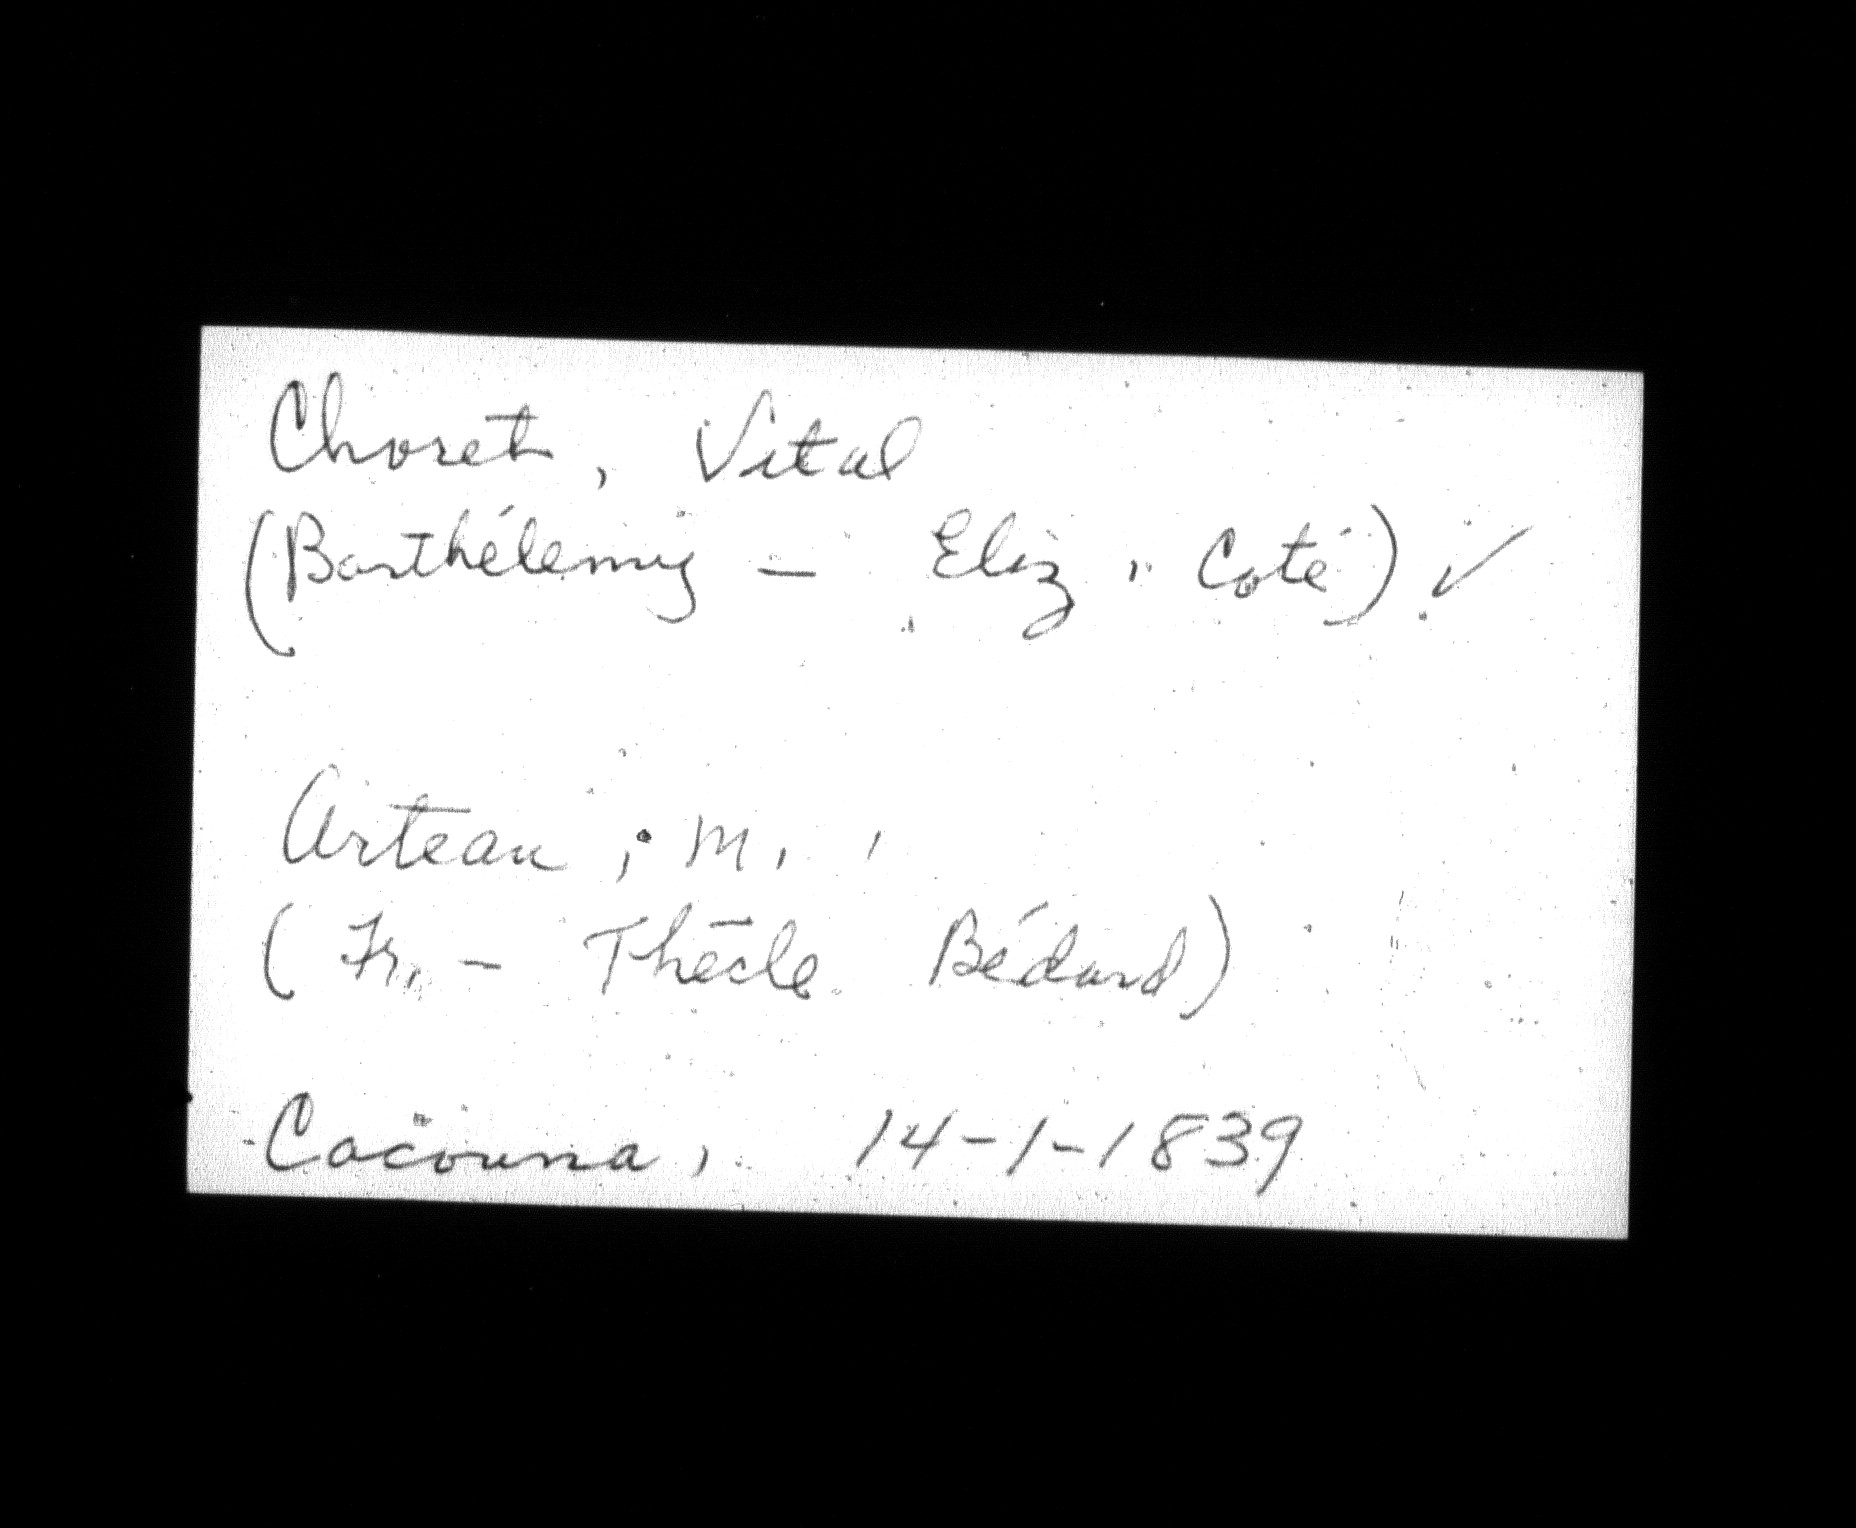 Choret, Vital
(Barthélemy - Eliz. Coté) ✓
Arteau, M.
(Fr. - Thècle Bédard)
Cacouna, 14-1-1839